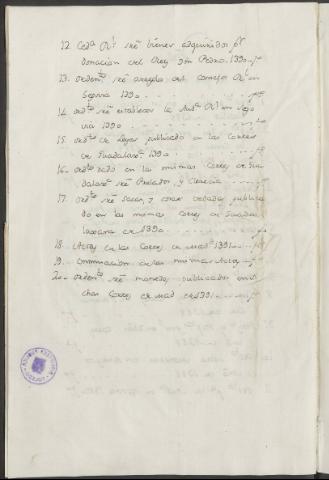 12. Ced.ª R.l sre bienes adquiridos pr
donacion del Rey Dn Pedro. 1390.
13. ordento. sre arreglo del consejo Rl en
Segovia 1390
14. ordto. sre establecer la Audª Rl en Sego
via 1390
15. ordto. de Leyes publicado en las Cortes
de Guadalaxª 1390
16. ordto. dado en las mismas Cortes de Gua
dalaxª sre Prelados, y Clerecia
17. ordto. sre sacas, y cosas vedadas publica
do en las mismas Cortes de Guada
laxara de 1390
18. Actas de las Cortes de Madd. 1391
19. Continuacion de las mismas Actas
20. ordento. sre moneda, publicados en di
chas Cortes de Mad. de 1391